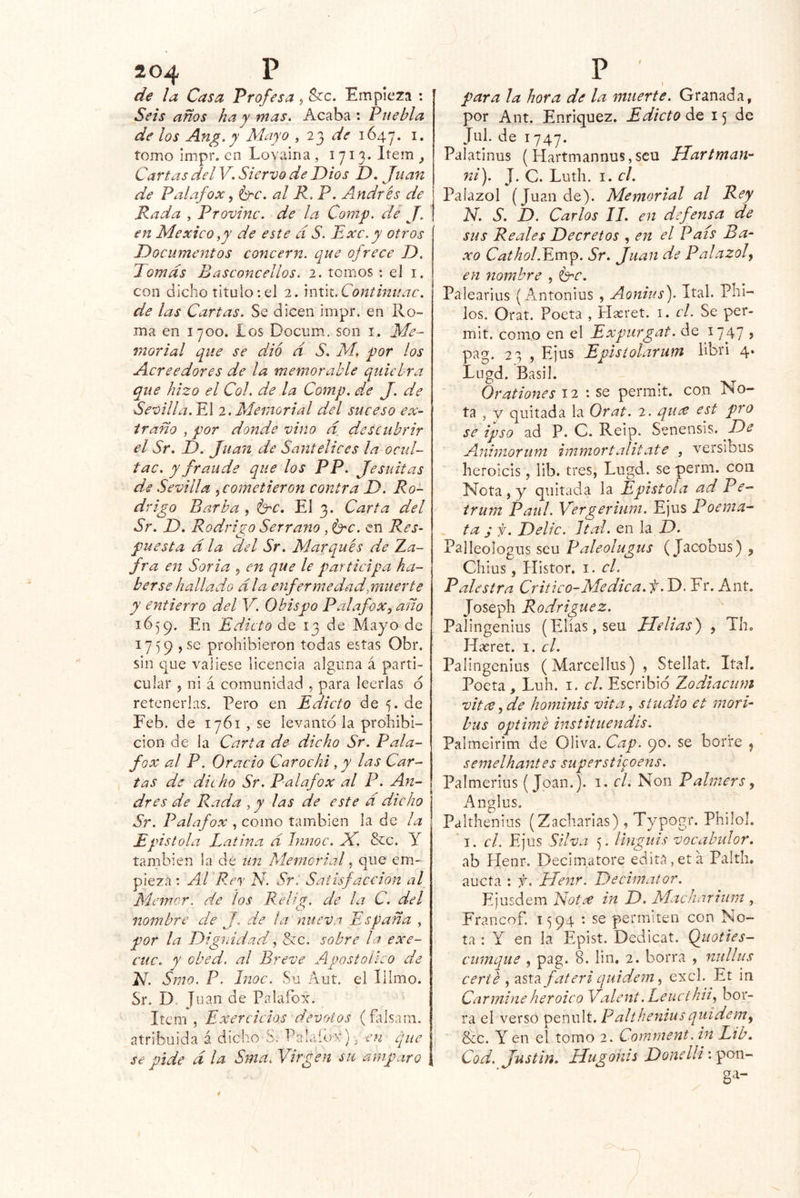 204 P
de la Casa Profesa, &c. Empieza :
Seis años ha y mas. Acaba : Puebla
de los Ang. y Mayo , 23 de 1647. 1.
tomo impr. en Lovaina, 1713. Item,
Cartas del V. Siervo de Dios D. Juan
de Palafox, &c. al R. P. Andrés de
Rada , Provinc. de la Comp. dé J.
en Mexico, y de este á S. Exc. y otros
Documentos concern. que ofrece D.
Tomás Basconcellos. 2. tomos : el 1.
con dicho titulo: el 2. intit. Continuac.
de las Cartas. Se dicen impr. en Ro-
ma en 1700. Los Docum. son 1. Me-
morial que se dió á S. M. por los
Acreedores de la memorable quiebra
que hizo el Col. de la Comp. de J. de
Sevilla. El 2. Memorial del suceso ex-
traño , por donde vino á descubrir
el Sr. D. Juan de Santelices la ocul-
tac. y fraude que los PP. Jesuitas
de Sevilla , cometieron contra D. Ro-
drigo Barba , &c. El 3. Carta del
Sr. D. Rodrigo Serrano , &c. en Res-
puesta á la del Sr. Marqués de Za-
fra en Soria , en que le participa ha-
berse hallado á la enfermedad, muerte
y entierro del V. Obispo Palafox, año
1659. En Edicto de 13 de Mayo de
1759 , se prohibieron todas estas Obr.
sin que valiese licencia alguna á parti-
cular , ni á comunidad , para leerlas ó
retenerlas. Pero en Edicto de 5. de
Feb. de 1761 , se levantó la prohibi-
cion de la Carta de dicho Sr. Pala-
fox al P. Oracio Carochi , y las Car-
tas de dicho Sr. Palafox al P. An-
dres de Rada , y las de este á dicho
Sr. Palafox , como tambien la de la
Epistola Latina á Innoc. X. &c. Y
tambien la de un Memorial, que em-
pieza : Al Rey N. Sr. Satisfaccion al
Memor. de los Relig. de la C. del
nombre de J. de la nueva España ,
por la Dignidad, &c. sobre la exe-
cuc. y obed. al Breve Apostolico de
N. Smo. P. Inoc. Su Aut. el Illmo.
Sr. D. Juan de Palafox.
Item , Exercicios devotos (falsam.
atribuida á dicho S. Palafox), en que
se pide á la Sma. Virgen su amparo
P
para la hora de la muerte. Granada,
por Ant. Enriquez. Edicto de 15 de
Jul. de 1747.
Palatinus (Hartmannus, seu Hartman-
ni). J. C. Luth. 1. cl.
Palazol (Juan de). Memorial al Rey
N. S. D. Carlos II. en defensa de
sus Reales Decretos , en el País Ba-
xo Cathol. Emp. Sr. Juan de Palazol,
en nombre , &c.
Palearius (Antonius , Aonius). Ital. Phi-
los. Orat. Poeta , Hæret. 1. cl. Se per-
mit. como en el Expurgat. de 1747 ,
pag. 23 , Ejus Epistolarum libri 4.
Lugd. Basil.
Orationes 12 : se permit. con No-
ta , y quitada la Orat. 2. quæ est pro
se ipso ad P. C. Reip. Senensis. De
Animorum immortalitate , versibus
heroicis , lib. tres, Lugd. se perm. con
Nota, y quitada la Epistola ad Pe-
trum Paul. Vergerium. Ejus Poema-
ta ; ỳ. Delic. Ital. en la D.
Palleologus seu Paleolugus (Jacobus) ,
Chius , Histor. 1. cl.
Palestra Critico-Medica. ỳ. D. Fr. Ant.
Joseph Rodriguez.
Palingenius (Elías, seu Helias) , Th.
Hæret. 1. cl.
Palingenius (Marcellus) , Stellat. Ital.
Poeta , Luh. 1. cl. Escribió Zodiacum
vitæ, de hominis vita, studio et mori-
bus optimè instituendis.
Palmeirim de Oliva. Cap. 90. se borre ,
semelhantes superstiçoens.
Palmerius (Joan.). 1. cl. Non Palmers,
Anglus.
Palthenius (Zacharias) , Typogr. Philol.
1. cl. Ejus Silva 5. linguis vocabulor.
ab Henr. Decimatore edita, et à Palth.
aucta : ỳ. Henr. Decimator.
Ejusdem Notæ in D. Macharium ,
Francof. 1594 : se permiten con No-
ta : Y en la Epist. Dedicat. Quoties-
cumque , pag. 8. lin. 2. borra , nullus
certè , asta fateri quidem, excl. Et in
Carmine heroico Valent. Leucthii, bor-
ra el verso penult. Palthenius quidem,
&c. Y en el tomo 2. Comment. in Lib.
Cod. Justin. Hugonis Donelli : pon-
ga-